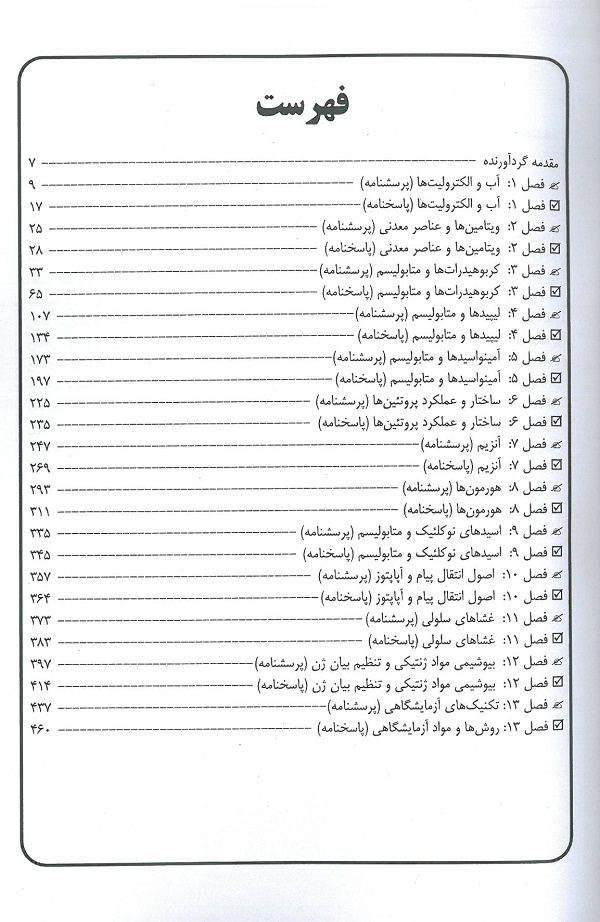 فهرست
مقدمه گردآورنده ---------- ۷
✍ فصل ۱: آب و الکترولیت‌ها (پرسشنامه) ---------- ۹
☑ فصل ۱: آب و الکترولیت‌ها (پاسخنامه) ---------- ۱۷
✍ فصل ۲: ویتامین‌ها و عناصر معدنی (پرسشنامه) ---------- ۲۵
☑ فصل ۲: ویتامین‌ها و عناصر معدنی (پاسخنامه) ---------- ۲۸
✍ فصل ۳: کربوهیدرات‌ها و متابولیسم (پرسشنامه) ---------- ۳۳
☑ فصل ۳: کربوهیدرات‌ها و متابولیسم (پاسخنامه) ---------- ۶۵
✍ فصل ۴: لیپیدها و متابولیسم (پرسشنامه) ---------- ۱۰۷
☑ فصل ۴: لیپیدها و متابولیسم (پاسخنامه) ---------- ۱۳۴
✍ فصل ۵: آمینواسیدها و متابولیسم (پرسشنامه) ---------- ۱۷۳
☑ فصل ۵: آمینواسیدها و متابولیسم (پاسخنامه) ---------- ۱۹۷
✍ فصل ۶: ساختار و عملکرد پروتئین‌ها (پرسشنامه) ---------- ۲۲۵
☑ فصل ۶: ساختار و عملکرد پروتئین‌ها (پاسخنامه) ---------- ۲۳۵
✍ فصل ۷: آنزیم (پرسشنامه) ---------- ۲۴۷
☑ فصل ۷: آنزیم (پاسخنامه) ---------- ۲۶۹
✍ فصل ۸: هورمون‌ها (پرسشنامه) ---------- ۲۹۳
☑ فصل ۸: هورمون‌ها (پاسخنامه) ---------- ۳۱۱
✍ فصل ۹: اسیدهای نوکلئیک و متابولیسم (پرسشنامه) ---------- ۳۳۵
☑ فصل ۹: اسیدهای نوکلئیک و متابولیسم (پاسخنامه) ---------- ۳۴۵
✍ فصل ۱۰: اصول انتقال پیام و آپاپتوز (پرسشنامه) ---------- ۳۵۷
☑ فصل ۱۰: اصول انتقال پیام و آپاپتوز (پاسخنامه) ---------- ۳۶۴
✍ فصل ۱۱: غشاهای سلولی (پرسشنامه) ---------- ۳۷۳
☑ فصل ۱۱: غشاهای سلولی (پاسخنامه) ---------- ۳۸۳
✍ فصل ۱۲: بیوشیمی مواد ژنتیکی و تنظیم بیان ژن (پرسشنامه) ---------- ۳۹۷
☑ فصل ۱۲: بیوشیمی مواد ژنتیکی و تنظیم بیان ژن (پاسخنامه) ---------- ۴۱۴
✍ فصل ۱۳: تکنیک‌های آزمایشگاهی (پرسشنامه) ---------- ۴۳۷
☑ فصل ۱۳: روش‌ها و مواد آزمایشگاهی (پاسخنامه) ---------- ۴۶۰